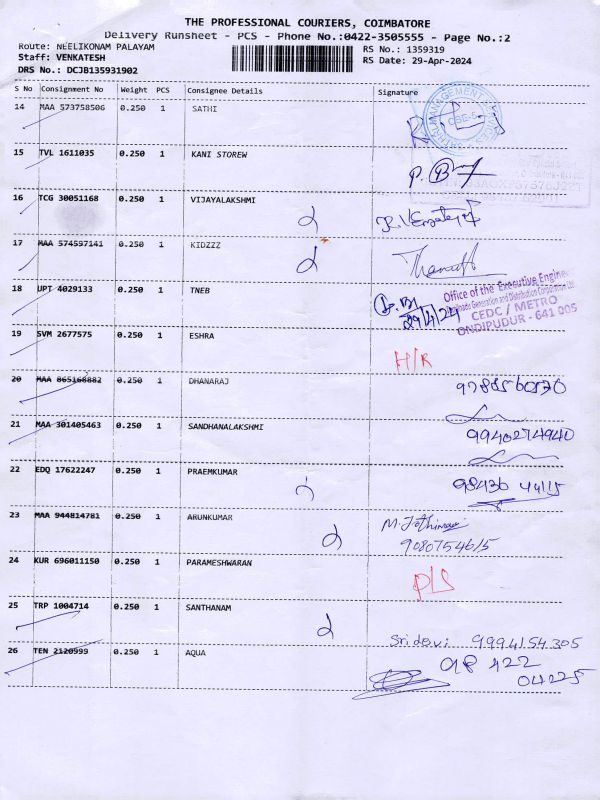 THE PROFESSIONAL COURIERS, COIMBATORE
Delivery Runsheet - PCS - Phone No.:0422-3505555 - Page No.:2
Route: NEELIKONAM PALAYAM RS No.: 1359319
Staff: VENKATESH RS Date: 29-Apr-2024
DRS No.: DCJB135931902
S No Consignment No Weight PCS Consignee Details Signature
14 MAA 573758506 0.250 1 SATHI
CBE-5
15 TVL 1611035 0.250 1 KANI STOREW
16 TCG 30051168 0.250 1 VIJAYALAKSHMI
17 MAA 574597141 0.250 1 KIDZZZ
18 UPT 4029133 0.250 1 TNEB
29/4/24
Office of the Executive Engineer
Generation and Distribution Corporation Ltd
CEDC / METRO
ONDIPUDUR - 641 005
19 SVM 2677575 0.250 1 ESHRA
H/R
20 MAA 865168882 0.250 1 DHANARAJ
21 MAA 301405463 0.250 1 SANDHANALAKSHMI
9940274940
22 EDQ 17622247 0.250 1 PRAEMKUMAR
98436 44115
23 MAA 944814781 0.250 1 ARUNKUMAR
9080754615
24 KUR 696011150 0.250 1 PARAMESHWARAN
P/S
25 TRP 1004714 0.250 1 SANTHANAM
Sridevi: 9994154305
26 TEN 2120999 0.250 1 AQUA
98 422
04225